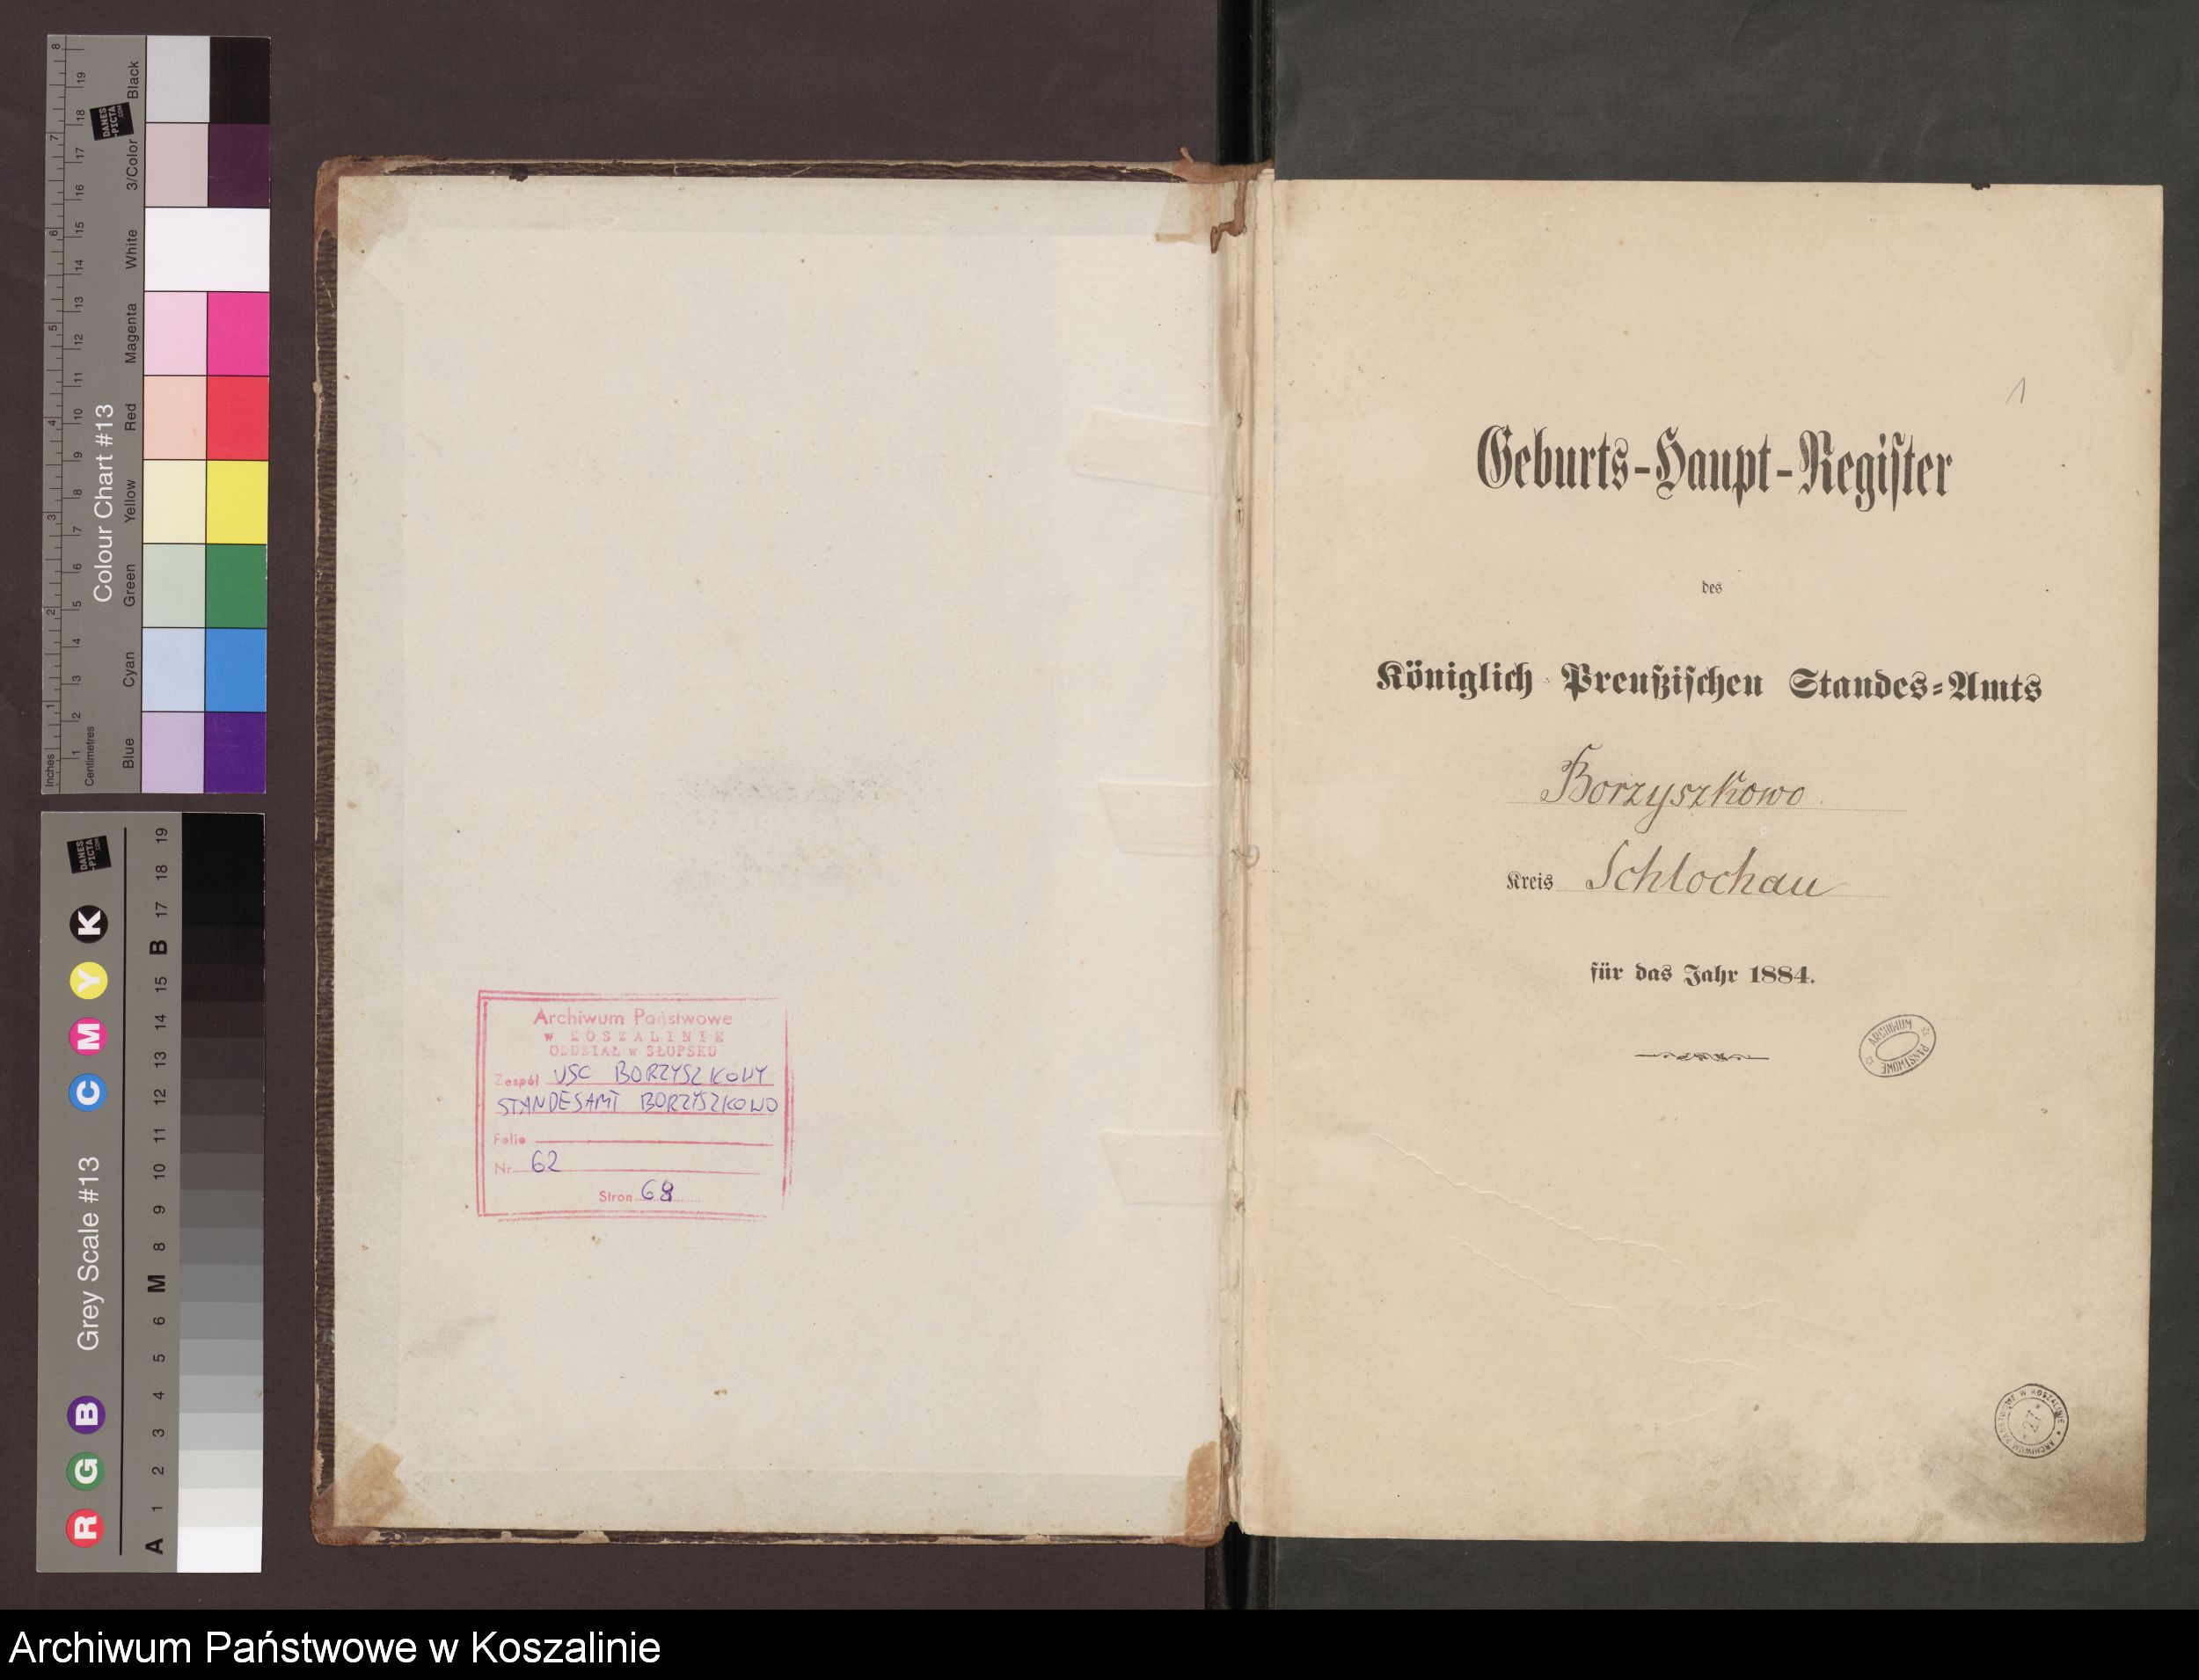 Archiwum Państwowe
w KOSZALINIE
ODDZIAŁ w SŁUPSKU
Zespół USC BORZYSZKOWY
STANDESAMT BORZYSZKOWO
Folio
Nr. 62
Stron 68
1
Geburts-Haupt-Regiſter
des
Königlich Preußiſchen Standes-Amts
Borzyszkowo
Kreis Schlochau
für das Jahr 1884.
ARCHIWUM PAŃSTWOWE
ARCHIWUM PAŃSTWOWE W KOSZALINIE
21
Colour Chart #13
Inches 1 2 3 4 5 6 7 8
Centimetres 1 2 3 4 5 6 7 8 9 10 11 12 13 14 15 16 17 18 19
Blue Cyan Green Yellow Red Magenta White 3/Color Black
DANES-PICTA.COM
Grey Scale #13
R G B C M Y K
A 1 2 3 4 5 6 M 8 9 10 11 12 13 14 15 B 17 18 19
DANES-PICTA.COM
Archiwum Państwowe w Koszalinie